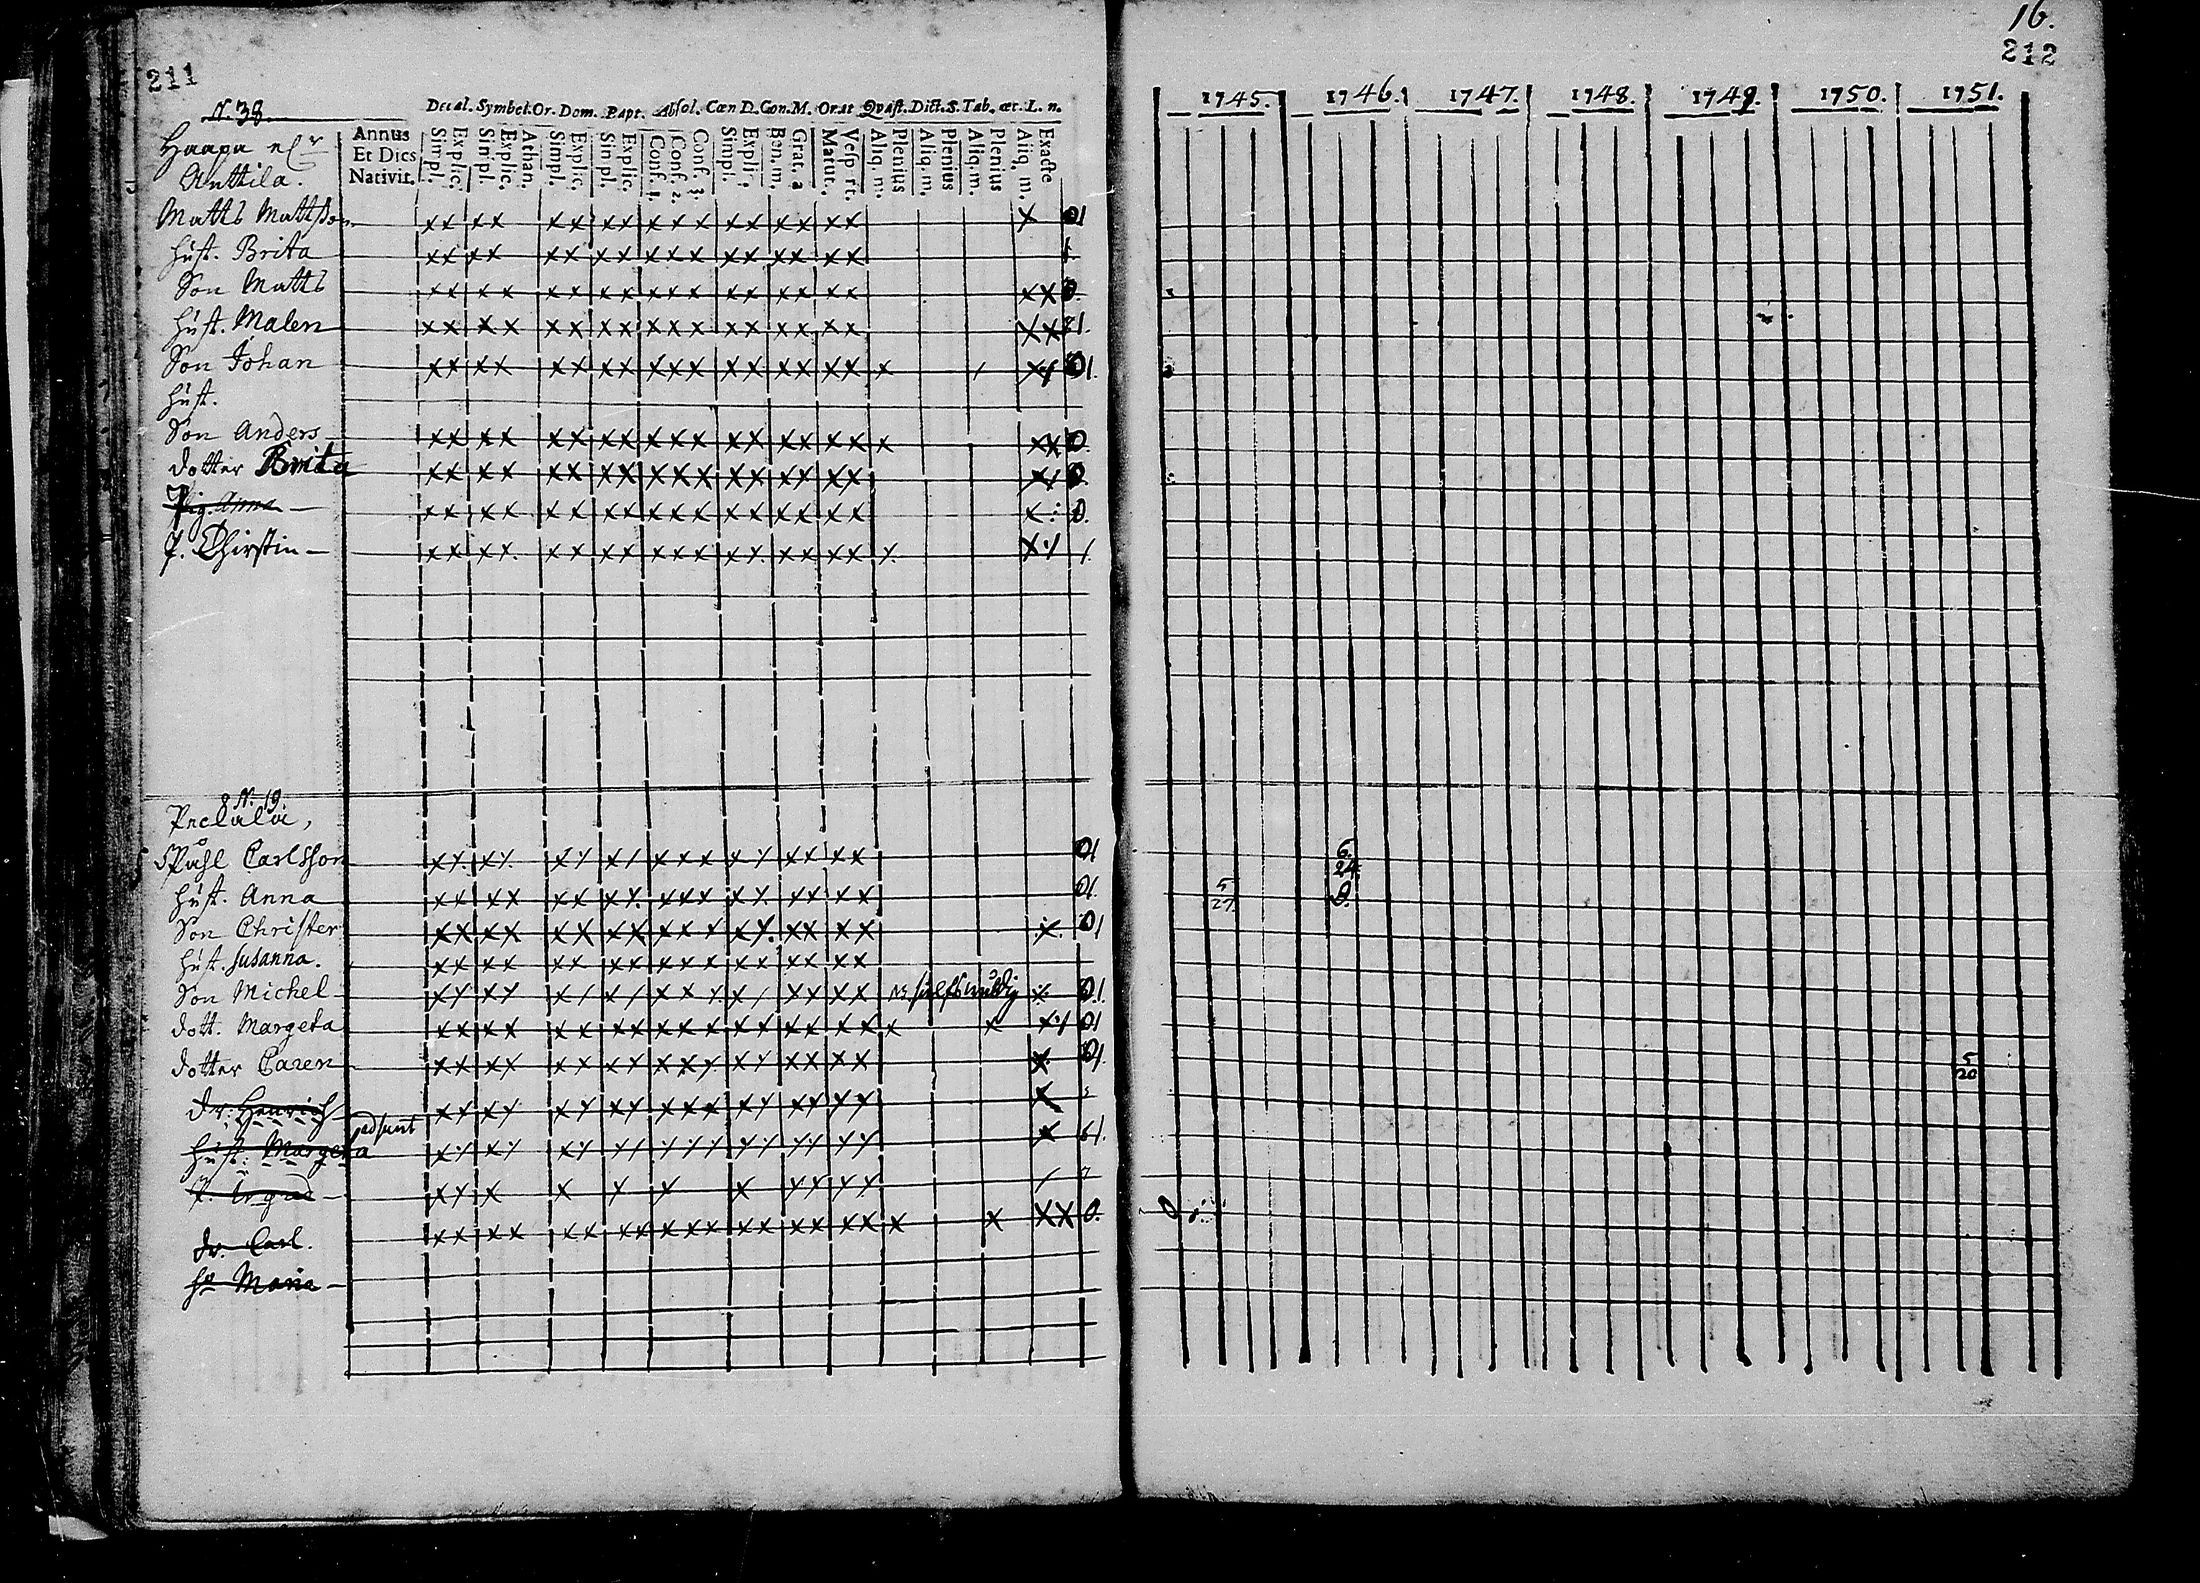 211
N. 38.
Decal. Symbol. Or. Dom. Bapt. Absol. Cœn D. Con. M. Orat Qvæst. Dict. S. Tab. œc. L. n.
Haapa elr
Anttila.
Annus Et Dies Nativit.
Simpl. Explic. Simpl. Explic. Athan. Simpl. Explic. Simpl. Explic. Conf. 1. Conf. 2. Conf. 3. Simpl. Explic. Ben. m. Grat. a Matut. Vesp rt. Aliq. m. Plenius Aliq. m. Plenius Aliq. m. Plenius Aliq. m. Exacte
Matts Mattsson
hust. Brita
Son Matts
hust. Malen
Son Johan
hust.
Son Anders
dotter Brita
Pig. Anna
P. Chirstin
N. 19.
Påhl Carlsson
hust. Anna
Son Christer
hust. Susanna.
Son Michel
dott. Margeta
dotter Caren
dr. Henrich
adsunt
hust. Margeta
dr. Carl.
hu Maria
16.
212
1745. 1746. 1747. 1748. 1749. 1750. 1751.
6.
24
5
27.
5
20